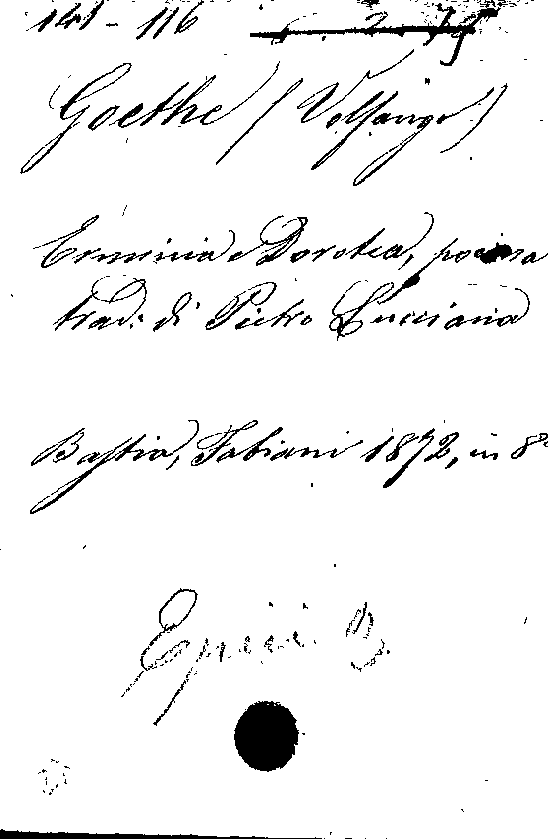 141-116
Goethe (Volfango)
Erminia e Dorotea, poema
trad: di Pietro Lucciana
Bastia, Fabiani 1872, in 8º
Epici